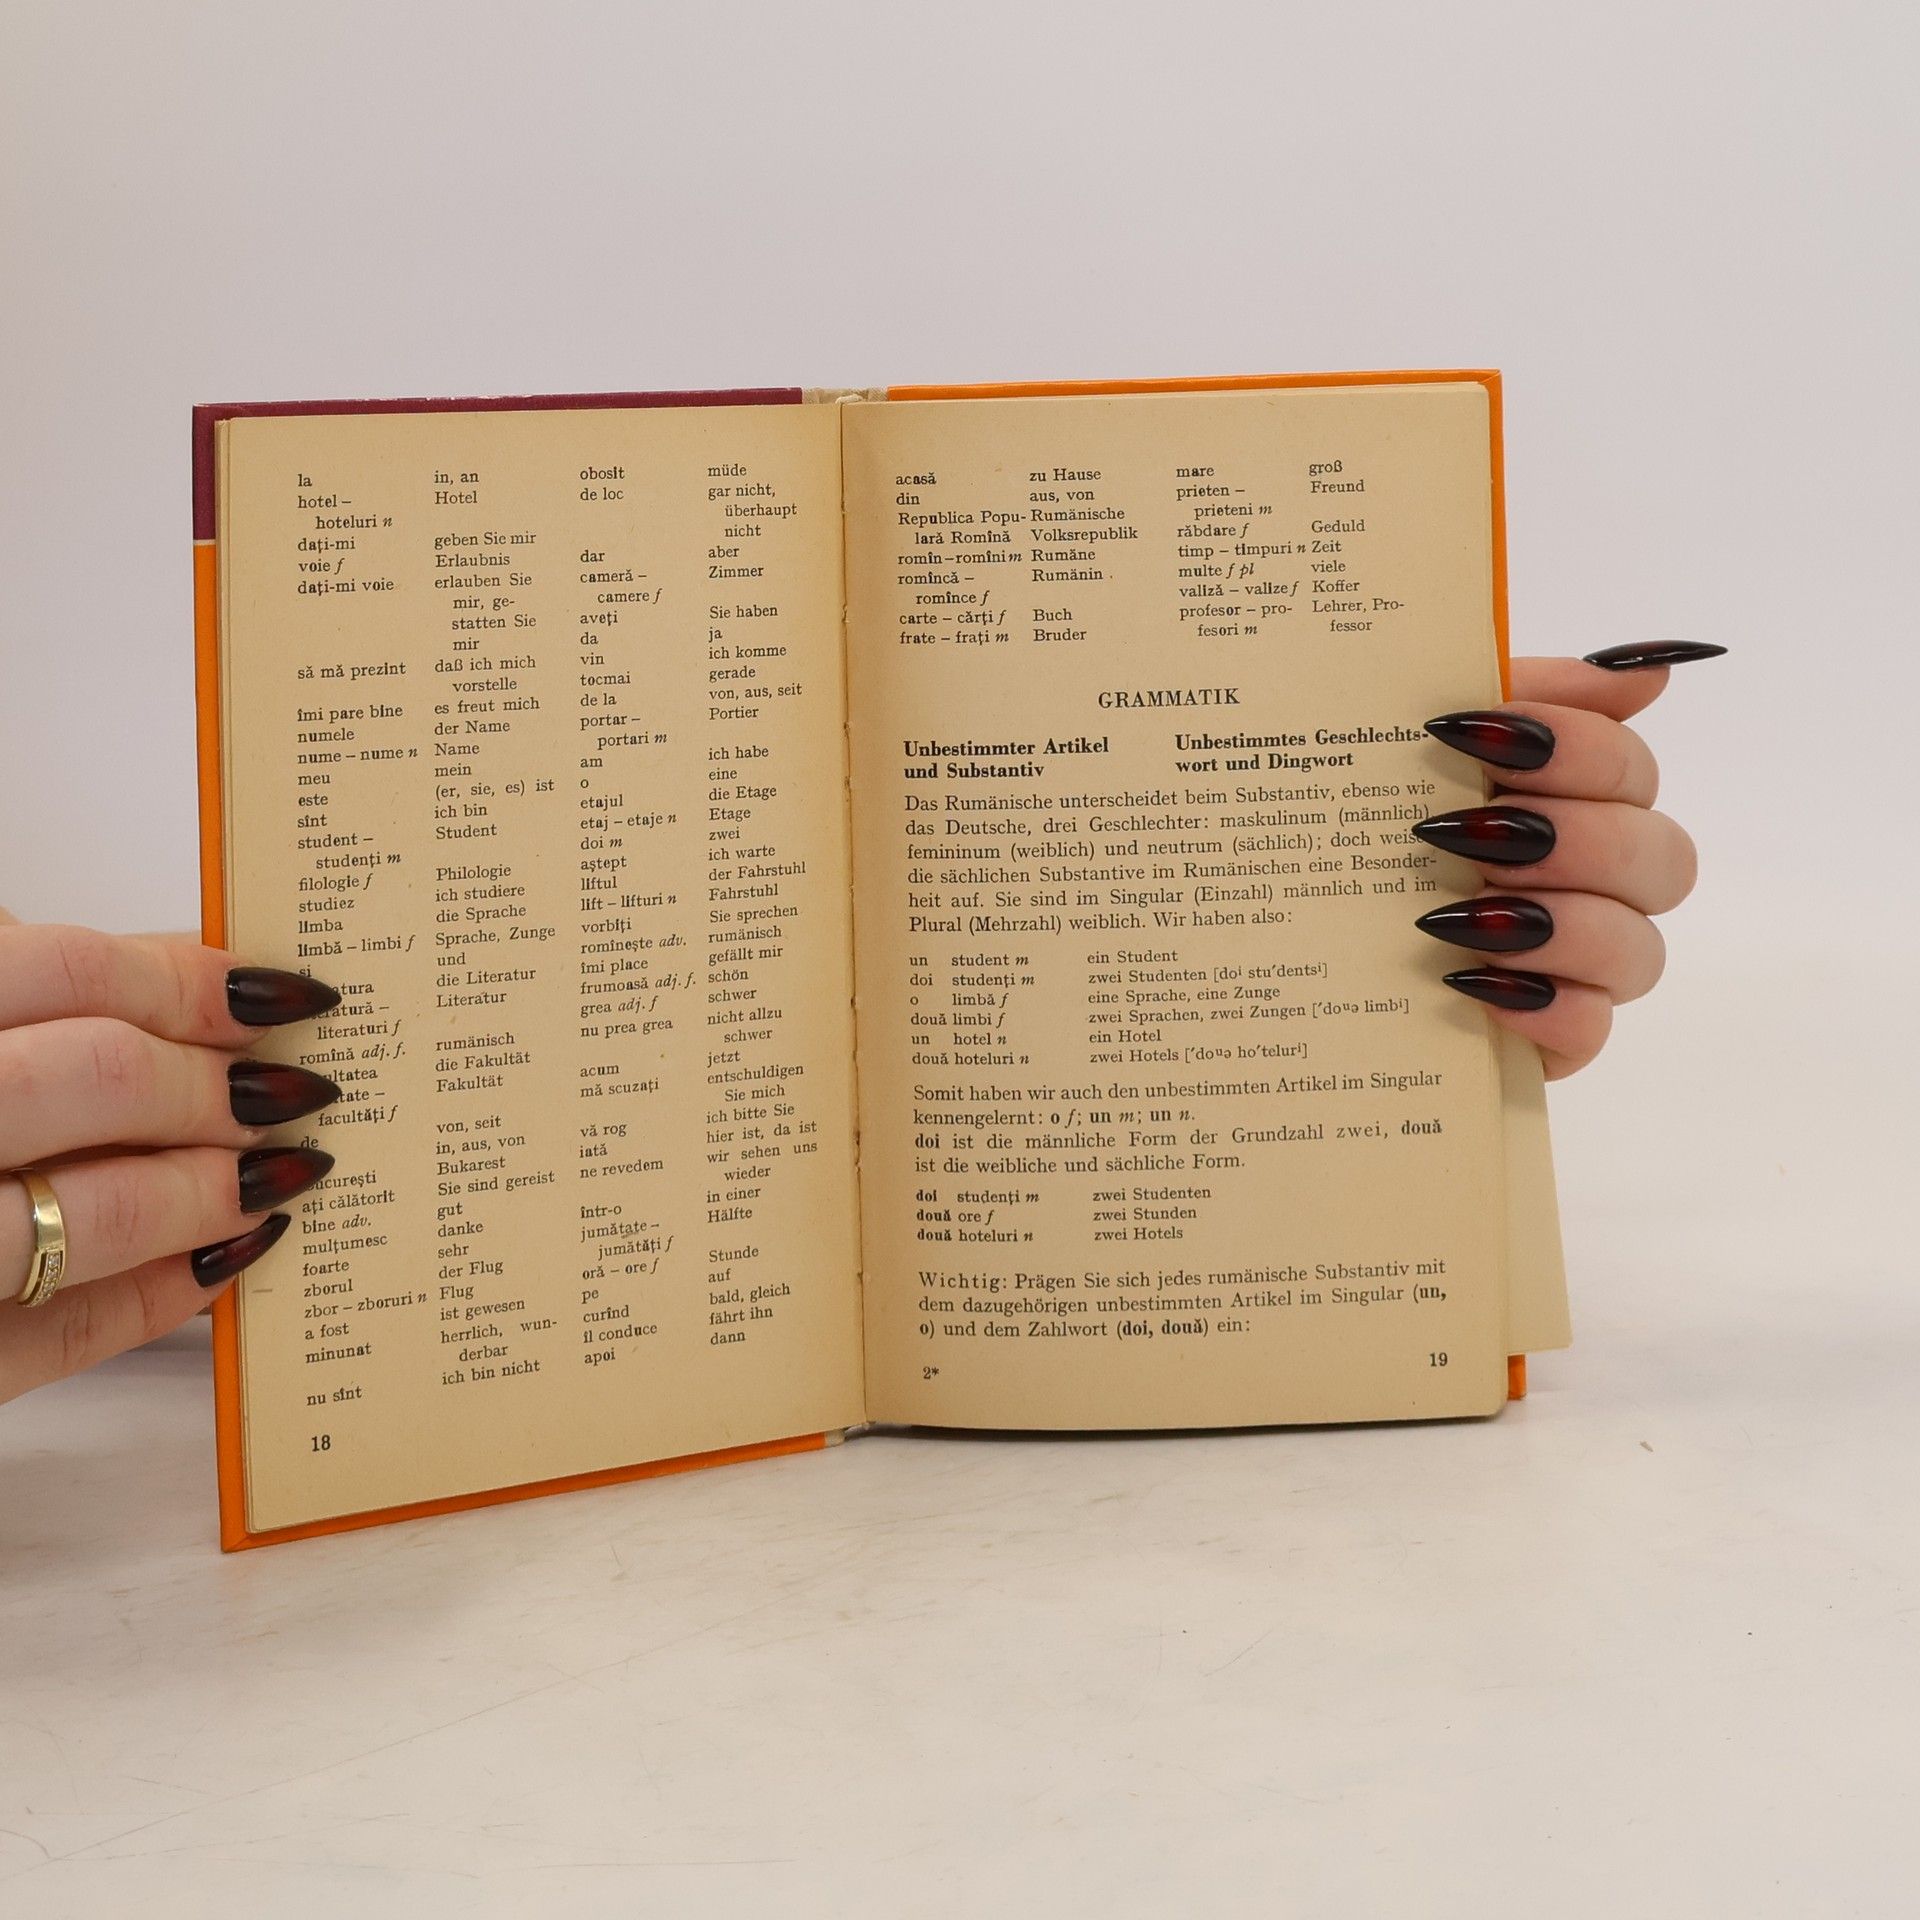 la in, an
hotel – Hotel
hoteluri n
dați-mi geben Sie mir
voie f Erlaubnis
dați-mi voie erlauben Sie
mir, ge-
statten Sie
mir
să mă prezint daß ich mich
vorstelle
îmi pare bine es freut mich
numele der Name
nume – nume n Name
meu mein
este (er, sie, es) ist
sînt ich bin
student – Student
studenți m
filologie f Philologie
studiez ich studiere
limba die Sprache
limbă – limbi f Sprache, Zunge
und
die Literatur
Literatur
literaturi f
romînă adj. f. rumänisch
die Fakultät
Fakultät
facultăți f
de von, seit
in, aus, von
Bukarest
ați călătorit Sie sind gereist
bine adv. gut
mulțumesc danke
foarte sehr
zborul der Flug
zbor – zboruri n Flug
a fost ist gewesen
minunat herrlich, wun-
derbar
nu sînt ich bin nicht
obosit müde
de loc gar nicht,
überhaupt
nicht
dar aber
cameră – Zimmer
camere f
aveți Sie haben
da ja
vin ich komme
tocmai gerade
de la von, aus, seit
portar – Portier
portari m
am ich habe
o eine
etajul die Etage
etaj – etaje n Etage
doi m zwei
aștept ich warte
liftul der Fahrstuhl
lift – lifturi n Fahrstuhl
vorbiți Sie sprechen
romînește adv. rumänisch
îmi place gefällt mir
frumoasă adj. f. schön
grea adj. f schwer
nu prea grea nicht allzu
schwer
acum jetzt
mă scuzați entschuldigen
Sie mich
vă rog ich bitte Sie
iată hier ist, da ist
ne revedem wir sehen uns
wieder
într-o in einer
jumătate – Hälfte
jumătăți f
oră – ore f Stunde
pe auf
curînd bald, gleich
îl conduce fährt ihn
apoi dann
18
acasă zu Hause
din aus, von
Republica Popu- Rumänische
lară Romînă Volksrepublik
romîn–romîni m Rumäne
romîncă – Rumänin
romînce f
carte – cărți f Buch
frate – frați m Bruder
mare groß
prieten – Freund
prieteni m
răbdare f Geduld
timp – timpuri n Zeit
multe f pl viele
valiză – valize f Koffer
profesor – pro- Lehrer, Pro-
fesori m fessor
GRAMMATIK
Unbestimmter Artikel
und Substantiv
Unbestimmtes Geschlechts-
wort und Dingwort
Das Rumänische unterscheidet beim Substantiv, ebenso wie
das Deutsche, drei Geschlechter: maskulinum (männlich),
femininum (weiblich) und neutrum (sächlich); doch
die sächlichen Substantive im Rumänischen eine Besonder-
heit auf. Sie sind im Singular (Einzahl) männlich und im
Plural (Mehrzahl) weiblich. Wir haben also:
un student m ein Student
doi studenți m zwei Studenten [doⁱ stu′dentsⁱ]
o limbă f eine Sprache, eine Zunge
două limbi f zwei Sprachen, zwei Zungen [′doᵘə limbⁱ]
un hotel n ein Hotel
două hoteluri n zwei Hotels [′doᵘə ho′telurⁱ]
Somit haben wir auch den unbestimmten Artikel im Singular
kennengelernt: o f; un m; un n.
doi ist die männliche Form der Grundzahl zwei, două
ist die weibliche und sächliche Form.
doi studenți m zwei Studenten
două ore f zwei Stunden
două hoteluri n zwei Hotels
Wichtig: Prägen Sie sich jedes rumänische Substantiv mit
dem dazugehörigen unbestimmten Artikel im Singular (un,
o) und dem Zahlwort (doi, două) ein:
2* 19